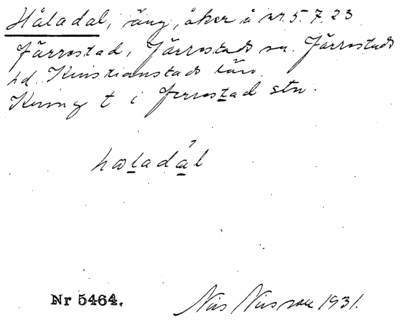 Håladal, äng, åker å nr 5. 7. 23
Järrestad, Järrestads sn. Järrestads
hd. Kristianstads län.
Kring t i Jerrestad stn.
hωladàl
Nr 5464.
Nils Nilsson 1931.